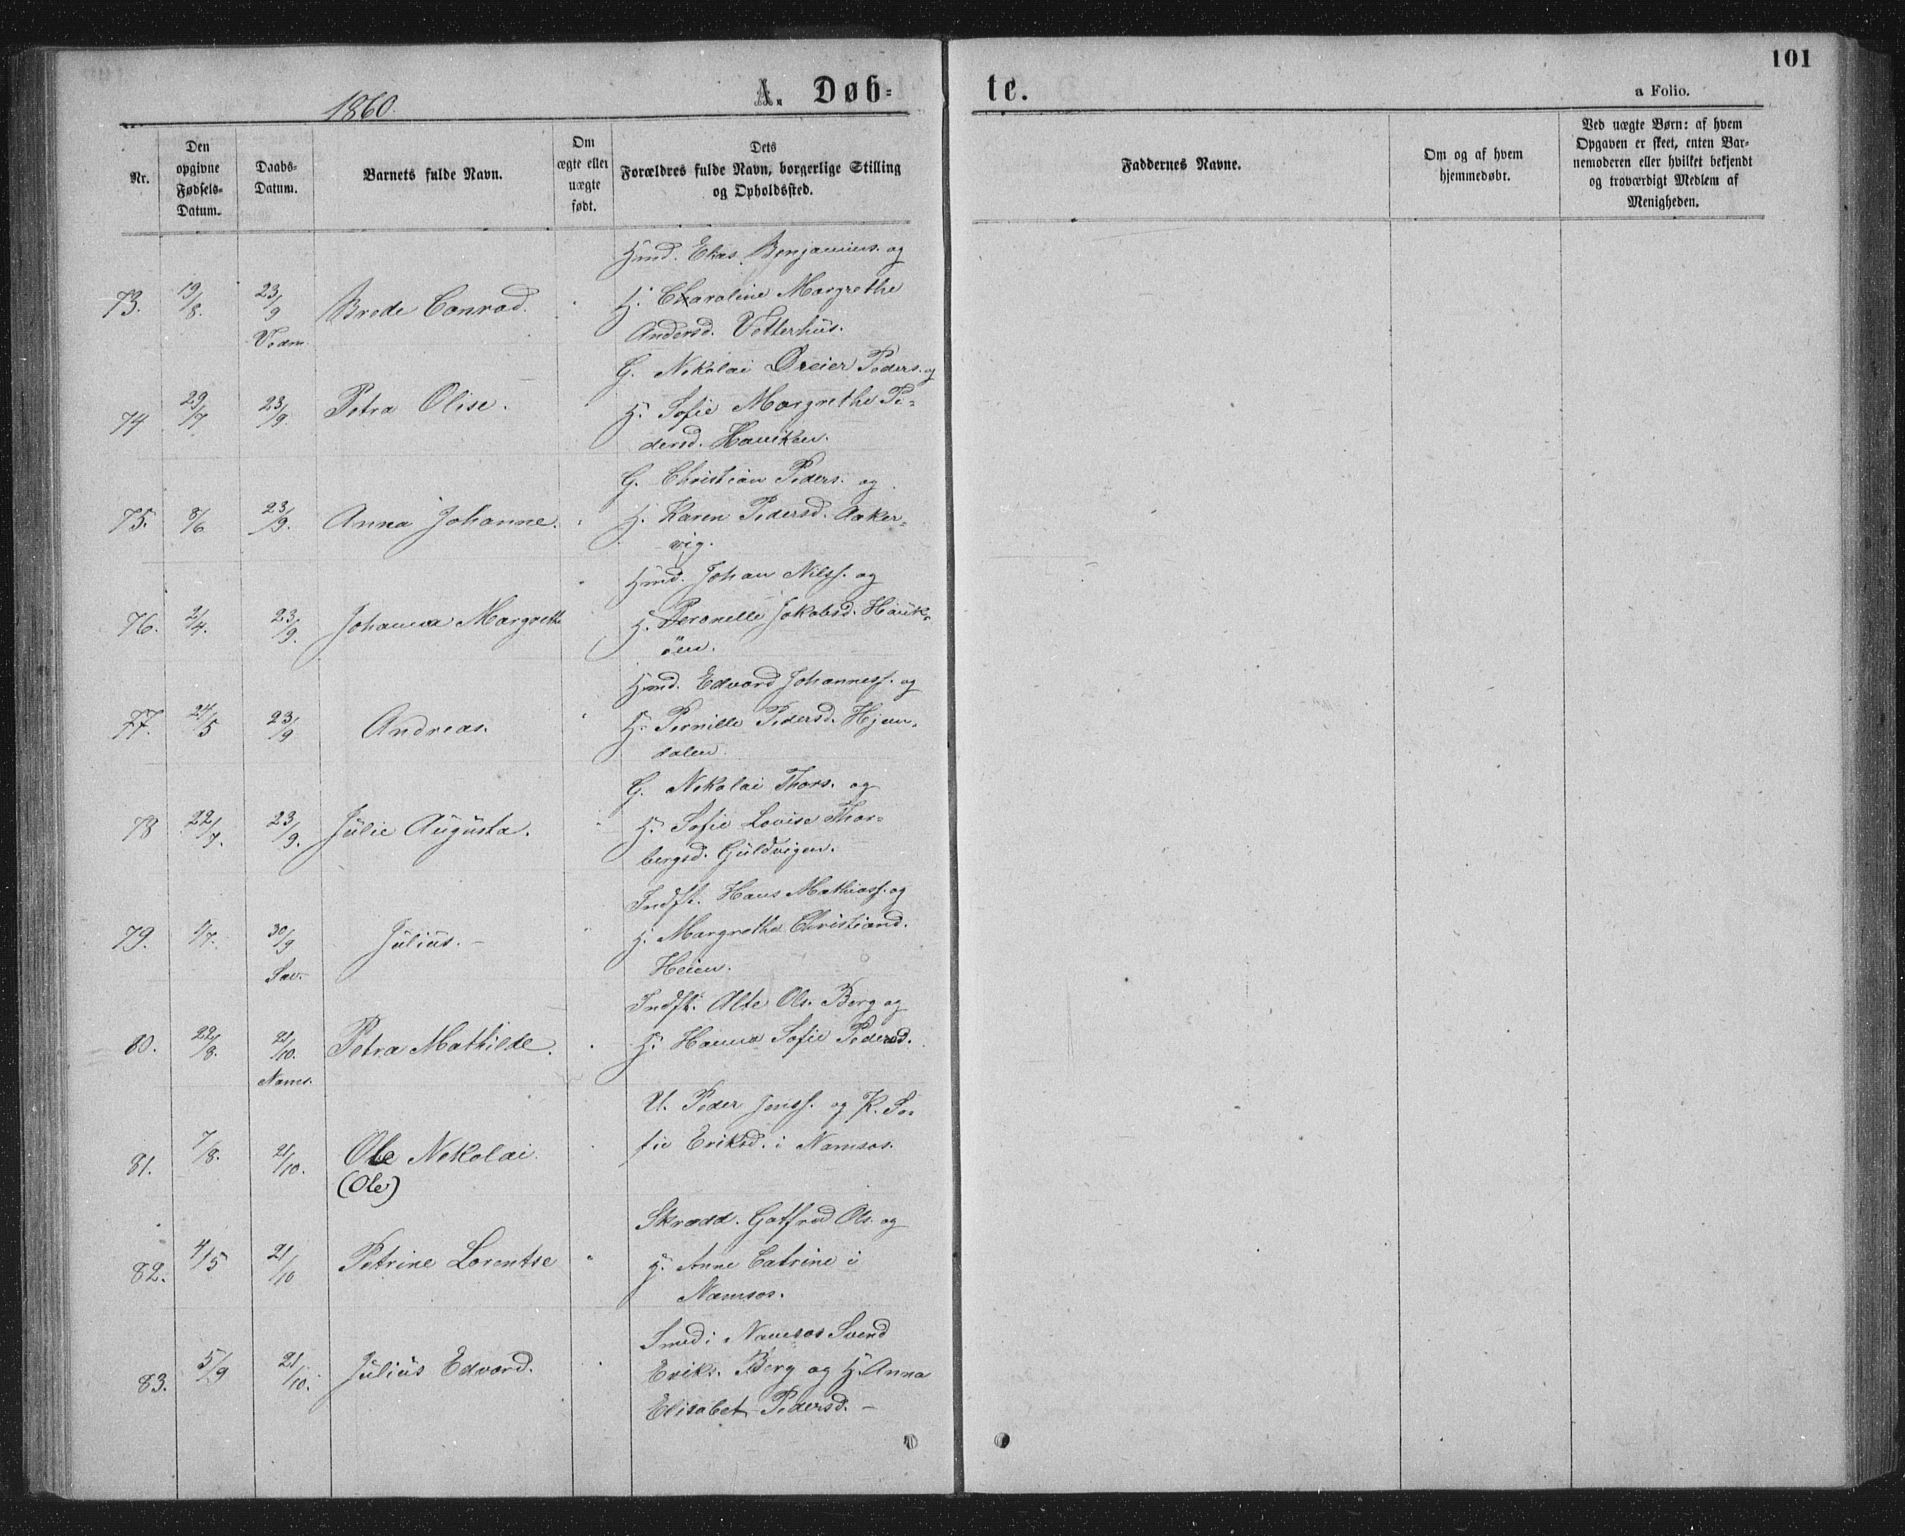 101
1860.
A. Døb=
te.
a Folio.
Nr.
Den opgivne Fødsels-Datum.
Daabs-Datum.
Barnets fulde Navn.
Om ægte eller uægte født.
Dets Forældres fulde Navn, borgerlige Stilling og Opholdssted.
Faddernes Navne.
Om og af hvem hjemmedøbt.
Ved uægte Børn: af hvem Opgaven er skeet, enten Barnemoderen eller hvilket bekjendt og troværdigt Medlem af Menigheden.
Hmd. Elias Benjamins. og
73. 19/8. 23/9 Brede Conrad. H. Charoline Margrethe
Vedm. Andersd. Vetterhus.
G. Nekolai Dreier Peders. og
74 29/7 23/9. Petra Olise. H. Sofie Margrethe Pe-
dersd. Haviken.
G. Christian Peders. og
75. 8/6 23/9. Anna Johanne. H. Karen Pedersd. Aaker-
vig.
Hmd. Johan Nilss. og
76. 2/4. 23/9. Johanna Margrethe H. Peronelle Jakobsd. Hauk-
öen.
Hmd. Edvard Johanness. og
77. 24/5 23/9 Andreas. H. Pernille Pedersd. Hjem-
dalen.
G. Nekolai Thors. og
78 22/7. 23/9. Julie Augusta. H. Sofie Lovise Thor-
bergsd. Guldvigen.
Indst. Hans Mathiass. og
79. 1/7. 30/9 Julius. - H. Margrethe Christiand.
Sæv. Heien.
Indst. Alte Ols. Berg og
80. 22/8. 21/10. Petra Mathilde. H. Hanna Sofie Pedersd.
Nams.
U. Peder Jenss. og K. So-
81. 7/8. 21/10. Ole Nekolai. fie Eriksd. i Namsos.
(Ole)
Skrædd. Gotfred Ols. og
82. 4/5 21/10 Petrine Lorentse H. Anne Catrine i
Namsos.
Smed i Namsos Svend
83. 5/9 21/10. Julius Edvard. Eriks. Berg og H. Anna
Elisabet Pedersd. -